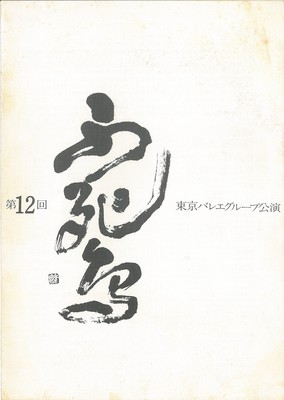 第12回
不死鳥
東京バレエグループ公演